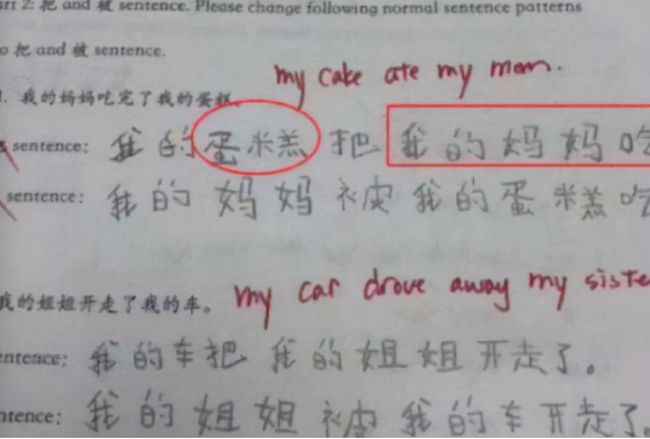 art 2: 把 and 被 sentence. Please change following normal sentence patterns
to 把 and 被 sentence.
my cake ate my mom.
1. 我的妈妈吃完了我的蛋糕。
sentence: 我的蛋糕把我的妈妈吃
sentence: 我的妈妈被我的蛋糕吃
my car drove away my siste
我的姐姐开走了我的车。
entence: 我的车把我的姐姐开走了。
ntence: 我的姐姐被我的车开走了.